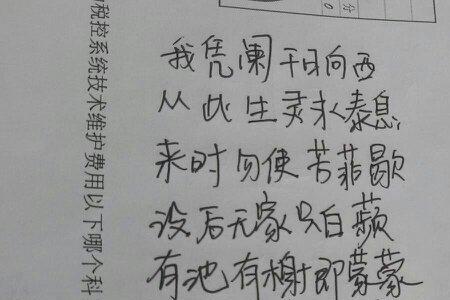 我凭阑干日向西
从此生灵求泰息
来时勿使芳菲歇
没后无家只白蘋
有池有榭即蒙蒙
税控系统技术维护费用以下哪个科
分
0